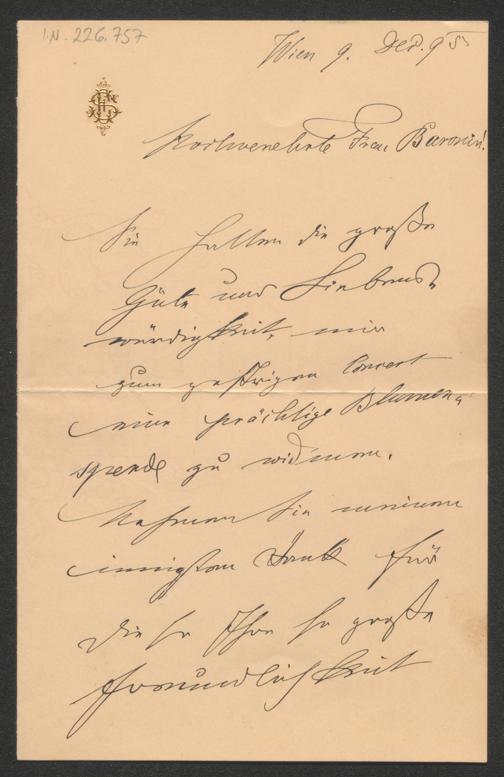 I.N. 226.757
Wien 9. Dez. 95
Hochverehrte Frau Baronin!
Sie hatten die große
Güte und Liebens-
würdigkeit, mir
zum gestrigen Concert
eine prächtige Blumen-
spende zu widmen.
Nehmen Sie meinen
innigsten Dank für
diese Ihre so große
Freundlichkeit